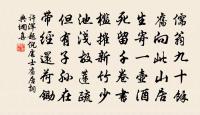 儒翁九十餘
舊向此山居
生寄一壺酒
死留千卷書
檻摧新竹少
池淺故蓮疏
但有子孫在
帶經還荷鋤
許渾題倪處士舊居詞
典網喜